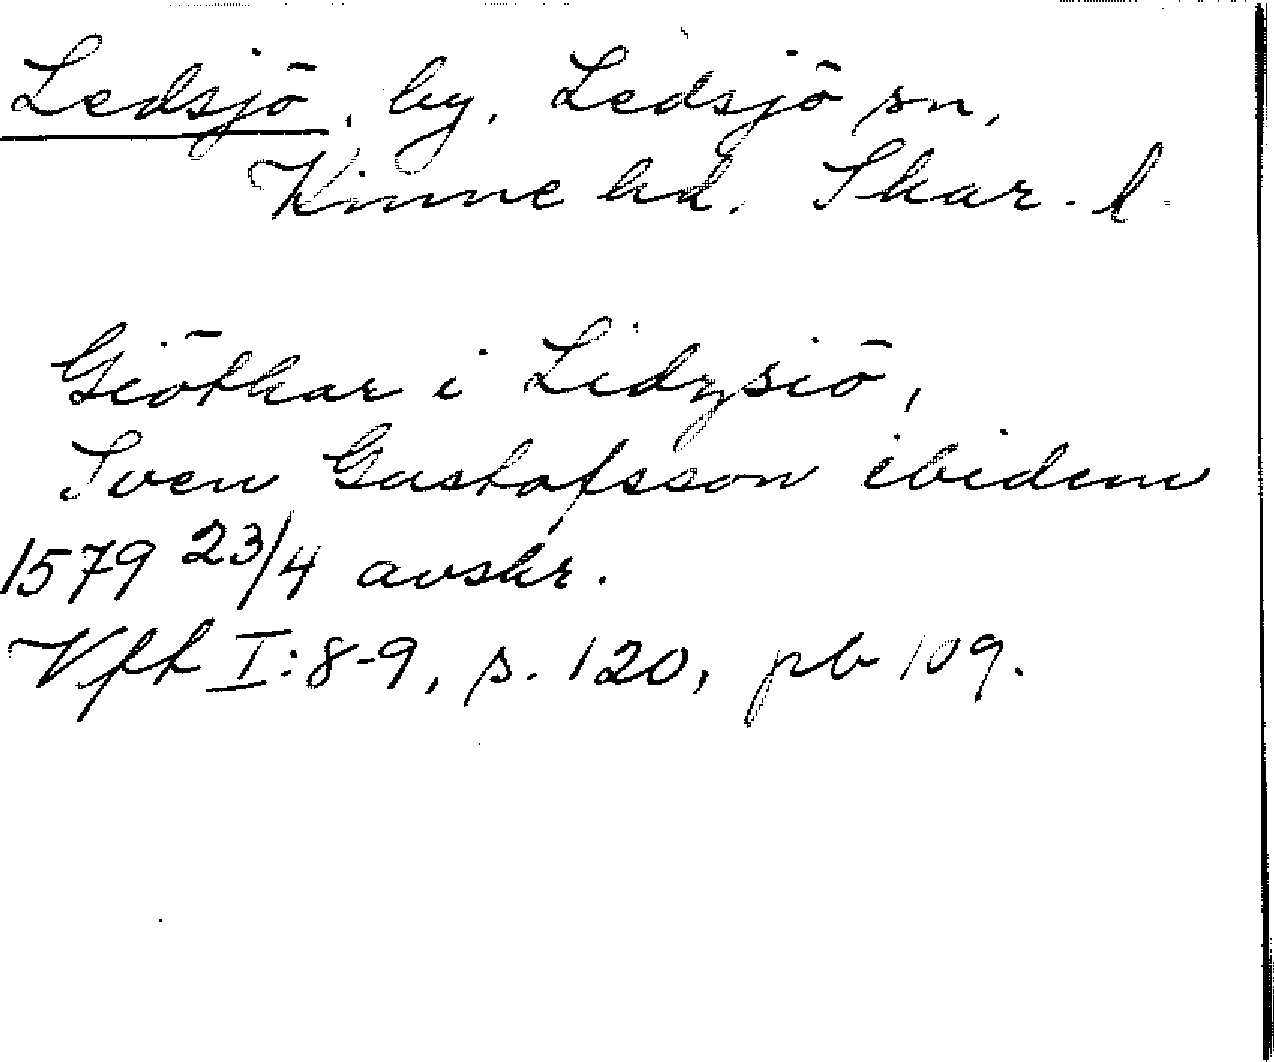 Ledsjö, by, Ledsjö sn,
Kinne hd. Skar. l.
Giöthar i Lidzsiö,
Sven Gustafsson ibidem
1579 23/4 avskr.
Vfh I:8-9, s. 120, pb 109.